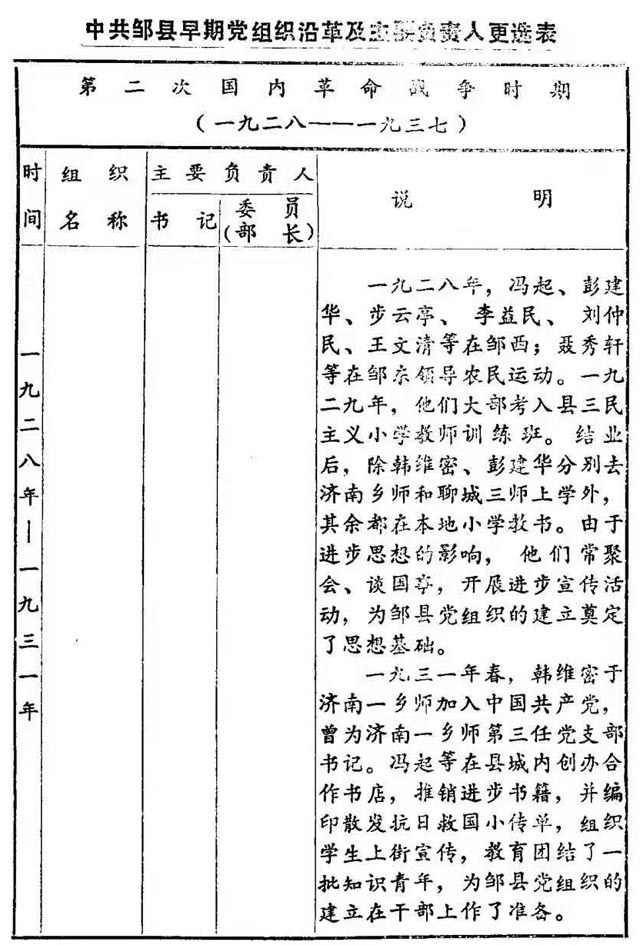 中共邹县早期党组织沿革及主要负责人更迭表
第二次国内革命战争时期
（一九二八——一九三七）
时间
组织名称
主要负责人
书记
委员（部长）
说明
一九二八年—一九三一年
一九二八年，冯起、彭建
华、步云亭、李益民、刘仲
民、王文清等在邹西；聂秀轩
等在邹东领导农民运动。一九
二九年，他们大部考入县三民
主义小学教师训练班。结业
后，除韩维密、彭建华分别去
济南乡师和聊城三师上学外，
其余都在本地小学教书。由于
进步思想的影响，他们常聚
会、谈国亭，开展进步宣传活
动，为邹县党组织的建立奠定
了思想基础。
一九三一年春，韩维密于
济南一乡师加入中国共产党，
曾为济南一乡师第三任党支部
书记。冯起等在县城内创办合
作书店，推销进步书籍，并编
印散发抗日救国小传单，组织
学生上街宣传，教育团结了一
批知识青年，为邹县党组织的
建立在干部上作了准备。